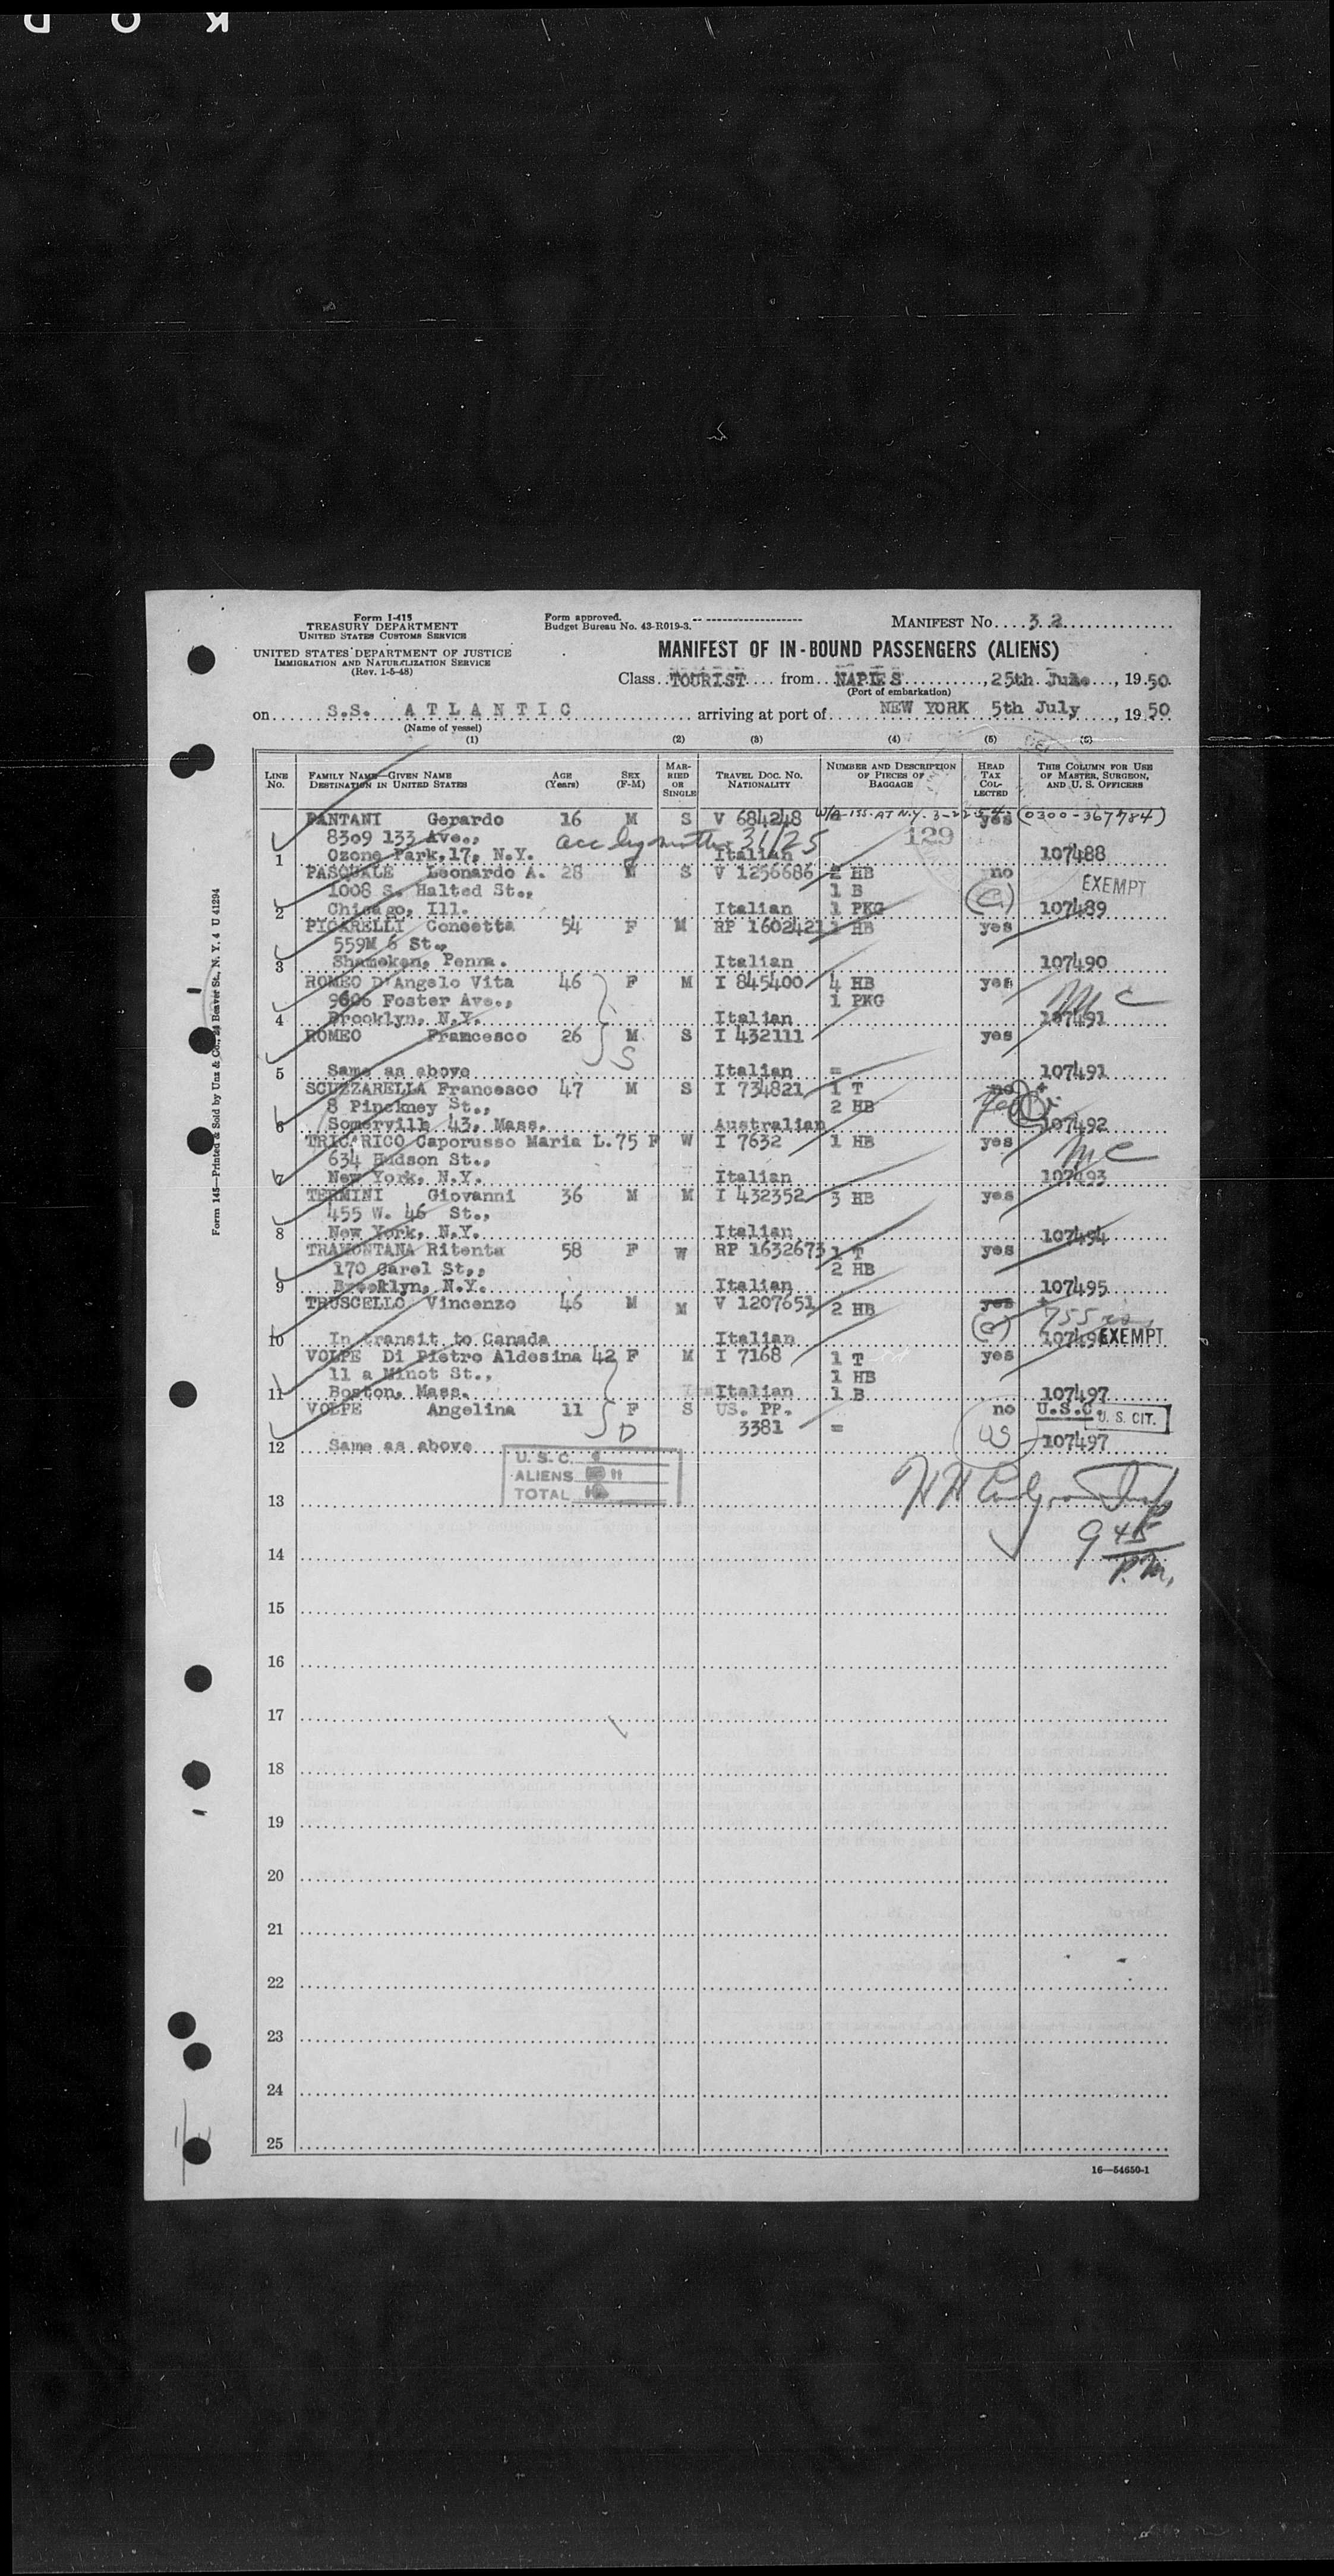 K O D
Form I-415
TREASURY DEPARTMENT
UNITED STATES CUSTOMS SERVICE
UNITED STATES DEPARTMENT OF JUSTICE
IMMIGRATION AND NATURALIZATION SERVICE
(Rev. 1-5-48)
Form approved.
Budget Bureau No. 43-R019-3.
MANIFEST No. 32
MANIFEST OF IN-BOUND PASSENGERS (ALIENS)
Class TOURIST from NAPLES, 25th June, 1950
(Port of embarkation)
on S.S. ATLANTIC arriving at port of NEW YORK 5th July, 1950
(Name of vessel)
(1) (2) (3) (4) (5) (6)
LINE No. FAMILY NAME—GIVEN NAME DESTINATION IN UNITED STATES AGE (Years) SEX (F-M) MARRIED OR SINGLE TRAVEL DOC. NO. NATIONALITY NUMBER AND DESCRIPTION OF PIECES OF BAGGAGE HEAD TAX COLLECTED THIS COLUMN FOR USE OF MASTER, SURGEON, AND U. S. OFFICERS
PANTANI Gerardo 16 M S V 684248 W/A-155-AT N.Y. yes (0300-367484)
8309 133 Ave., acc by mother 31/25 129
1 Ozone Park,17, N.Y. Italian 107488
PASQUALE Leonardo A. 28 M S V 1256686 2 HB no
1008 S. Halted St., 1 B EXEMPT
2 Chicago, Ill. Italian 1 PKG 107489
PICARELLI Concetta 54 F M RP 1602421 1 HB yes
559M 6 St.,
3 Shamoken, Penna. Italian 107490
ROMEO D'Angelo Vita 46 F M I 845400 4 HB yes
9606 Foster Ave., 1 PKG
4 Brooklyn, N.Y. Italian 107491
ROMEO Francesco 26 M S I 432111 yes
S
5 Same as above Italian = 107491
SCUZZARELLA Francesco 47 M S I 734821 1 T no
8 Pinckney St., 2 HB
6 Somerville 43, Mass. Australian 107492
TRICARICO Caporusso Maria L. 75 F W I 7632 1 HB yes
634 Hudson St.,
7 New York, N.Y. Italian 107493
TERMINI Giovanni 36 M M I 432352 3 HB yes
455 W. 46 St.,
8 New York, N.Y. Italian 107494
TRAMONTANA Ritenta 58 F W RP 1632673 1 T yes
170 Carol St,, 2 HB
9 Brooklyn, N.Y. Italian 107495
TRUSCELLO Vincenzo 46 M M V 1207651 2 HB yes
755
10 In transit to Canada Italian 107496 EXEMPT
VOLPE Di Pietro Aldesina 42 F M I 7168 1 T yes
11 a Minot St., 1 HB
11 Boston, Mass. Italian 1 B 107497
VOLPE Angelina 11 F S US. PP. no U.S.C. U. S. CIT.
D 3381 = US
12 Same as above 107497
U. S. C.
ALIENS 11
TOTAL
13
14
9 45
P.M.
15
16
17
18
19
20
21
22
23
24
25
16—54650-1
Form 145—Printed & Sold by Unz & Co., 24 Beaver St., N. Y. 4 U 41294